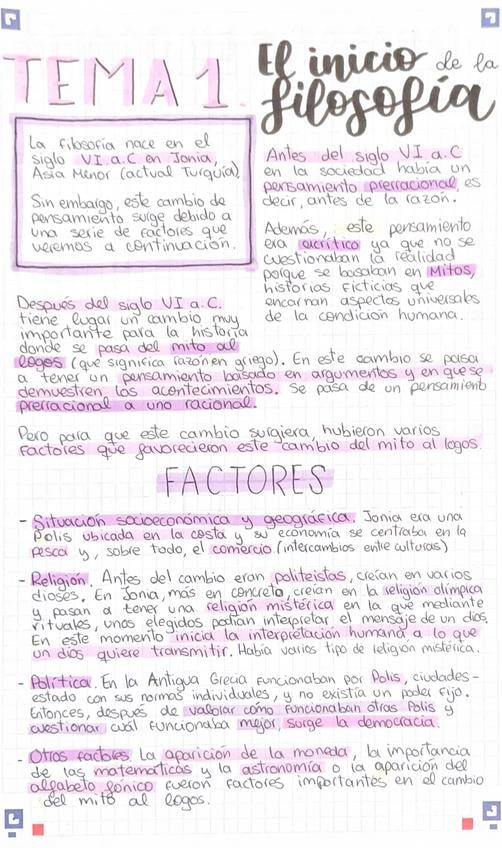 TEMA 1.
El inicio de la
filosofía
La filosofía nace en el
siglo VI a.C en Jonia,
Asia Menor (actual Turquía)
Sin embargo, este cambio de
pensamiento surge debido a
una serie de factores que
veremos a continuación.
Antes del siglo VI a.C
en la sociedad había un
pensamiento prerracional, es
decir, antes de la razón.
Además, este pensamiento
era acrítico ya que no se
cuestionaban la realidad
porque se basaban en Mitos,
historias ficticias que
encarnan aspectos universales
de la condición humana.
Después del siglo VI a.C.
tiene lugar un cambio muy
importante para la historia
donde se pasa del mito al
logos (que significa razón en griego). En este cambio se paisa
a tener un pensamiento basado en argumentos y en que se
demuestren los acontecimientos. Se pasa de un pensamiento
prerracional a uno racional.
Pero para que este cambio surgiera, hubieron varios
factores que favorecieron este cambio del mito al logos.
FACTORES
- Situación socioeconómica y geográfica. Jonia era una
Polis ubicada en la costa y su economía se centraba en la
pesca y, sobre todo, el comercio (intercambios entre culturas)
- Religión. Antes del cambio eran politeístas, creían en varios
dioses. En Jonia, más en concreto, creían en la religión olímpica
y pasan a tener una religión mistérica en la que mediante
rituales, unos elegidos podían interpretar el mensaje de un dios.
En este momento inicia la interpretación humana a lo que
un dios quiere transmitir. Había varios tipo de religión mistérica.
- Política. En la Antigua Grecia funcionaban por Polis, ciudades-
estado con sus normas individuales, y no existía un poder fijo.
Entonces, después de valorar cómo funcionaban otras Polis y
cuestionar cuál funcionaba mejor, surge la democracia.
- Otros factores. La aparición de la moneda, la importancia
de las matemáticas y la astronomía o la aparición del
alfabeto fónico fueron factores importantes en el cambio
del mito al logos.